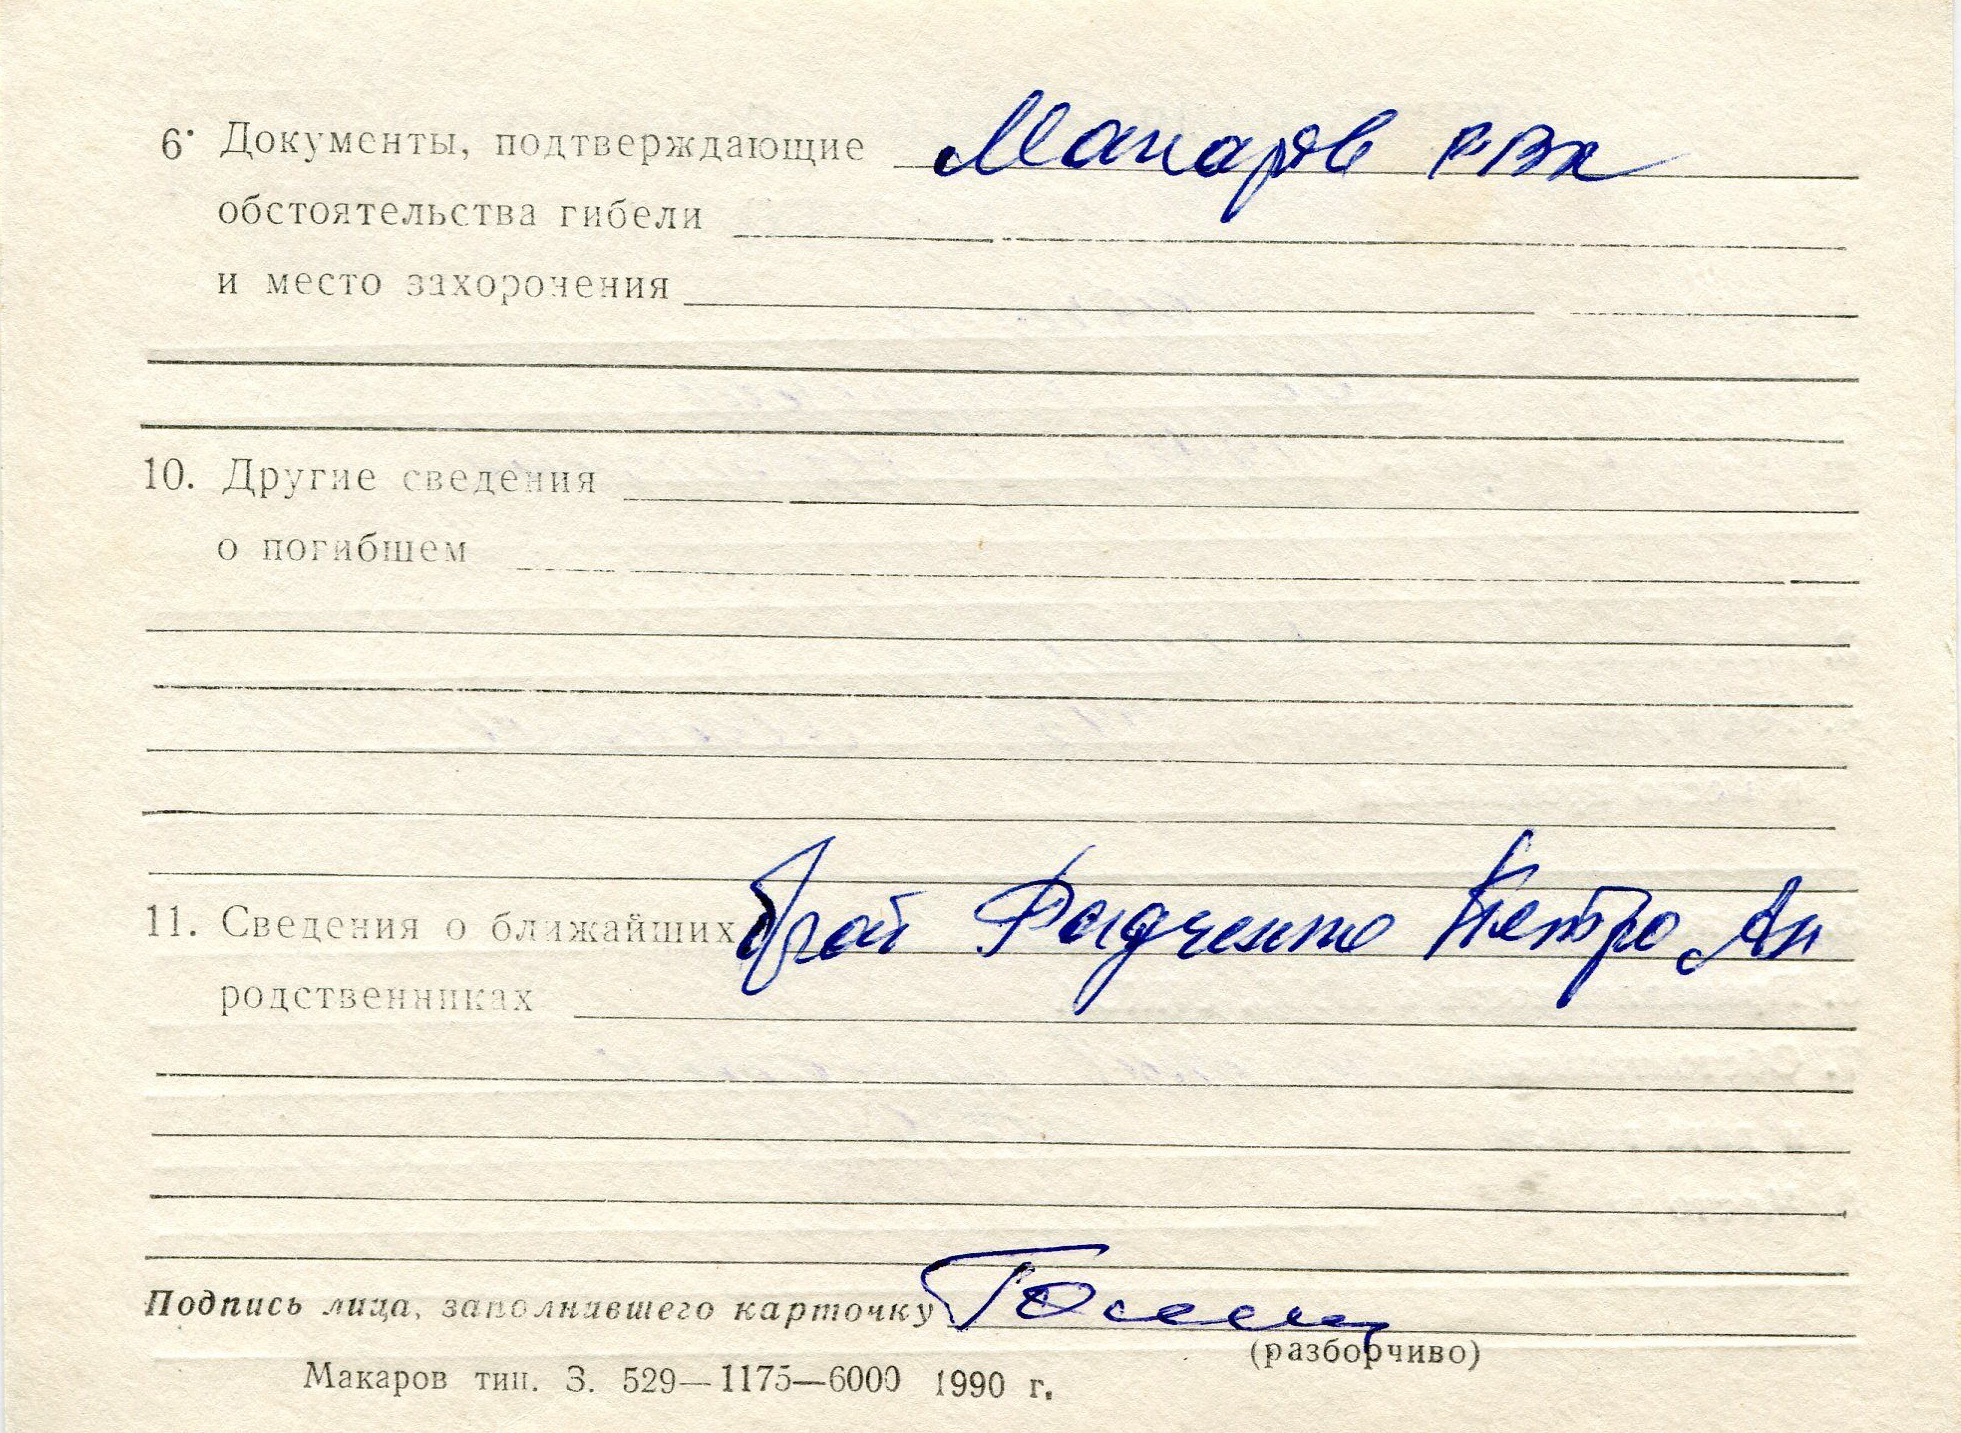 6. Документы, подтверждающие Макаров РВК
обстоятельства гибели
и место захоронения
10. Другие сведения
о погибшем
11. Сведения о ближайших брат Радченко Петро Ан
родственниках
Подпись лица, заполнившего карточку
(разборчиво)
Макаров тип. З. 529—1175—6000 1990 г.